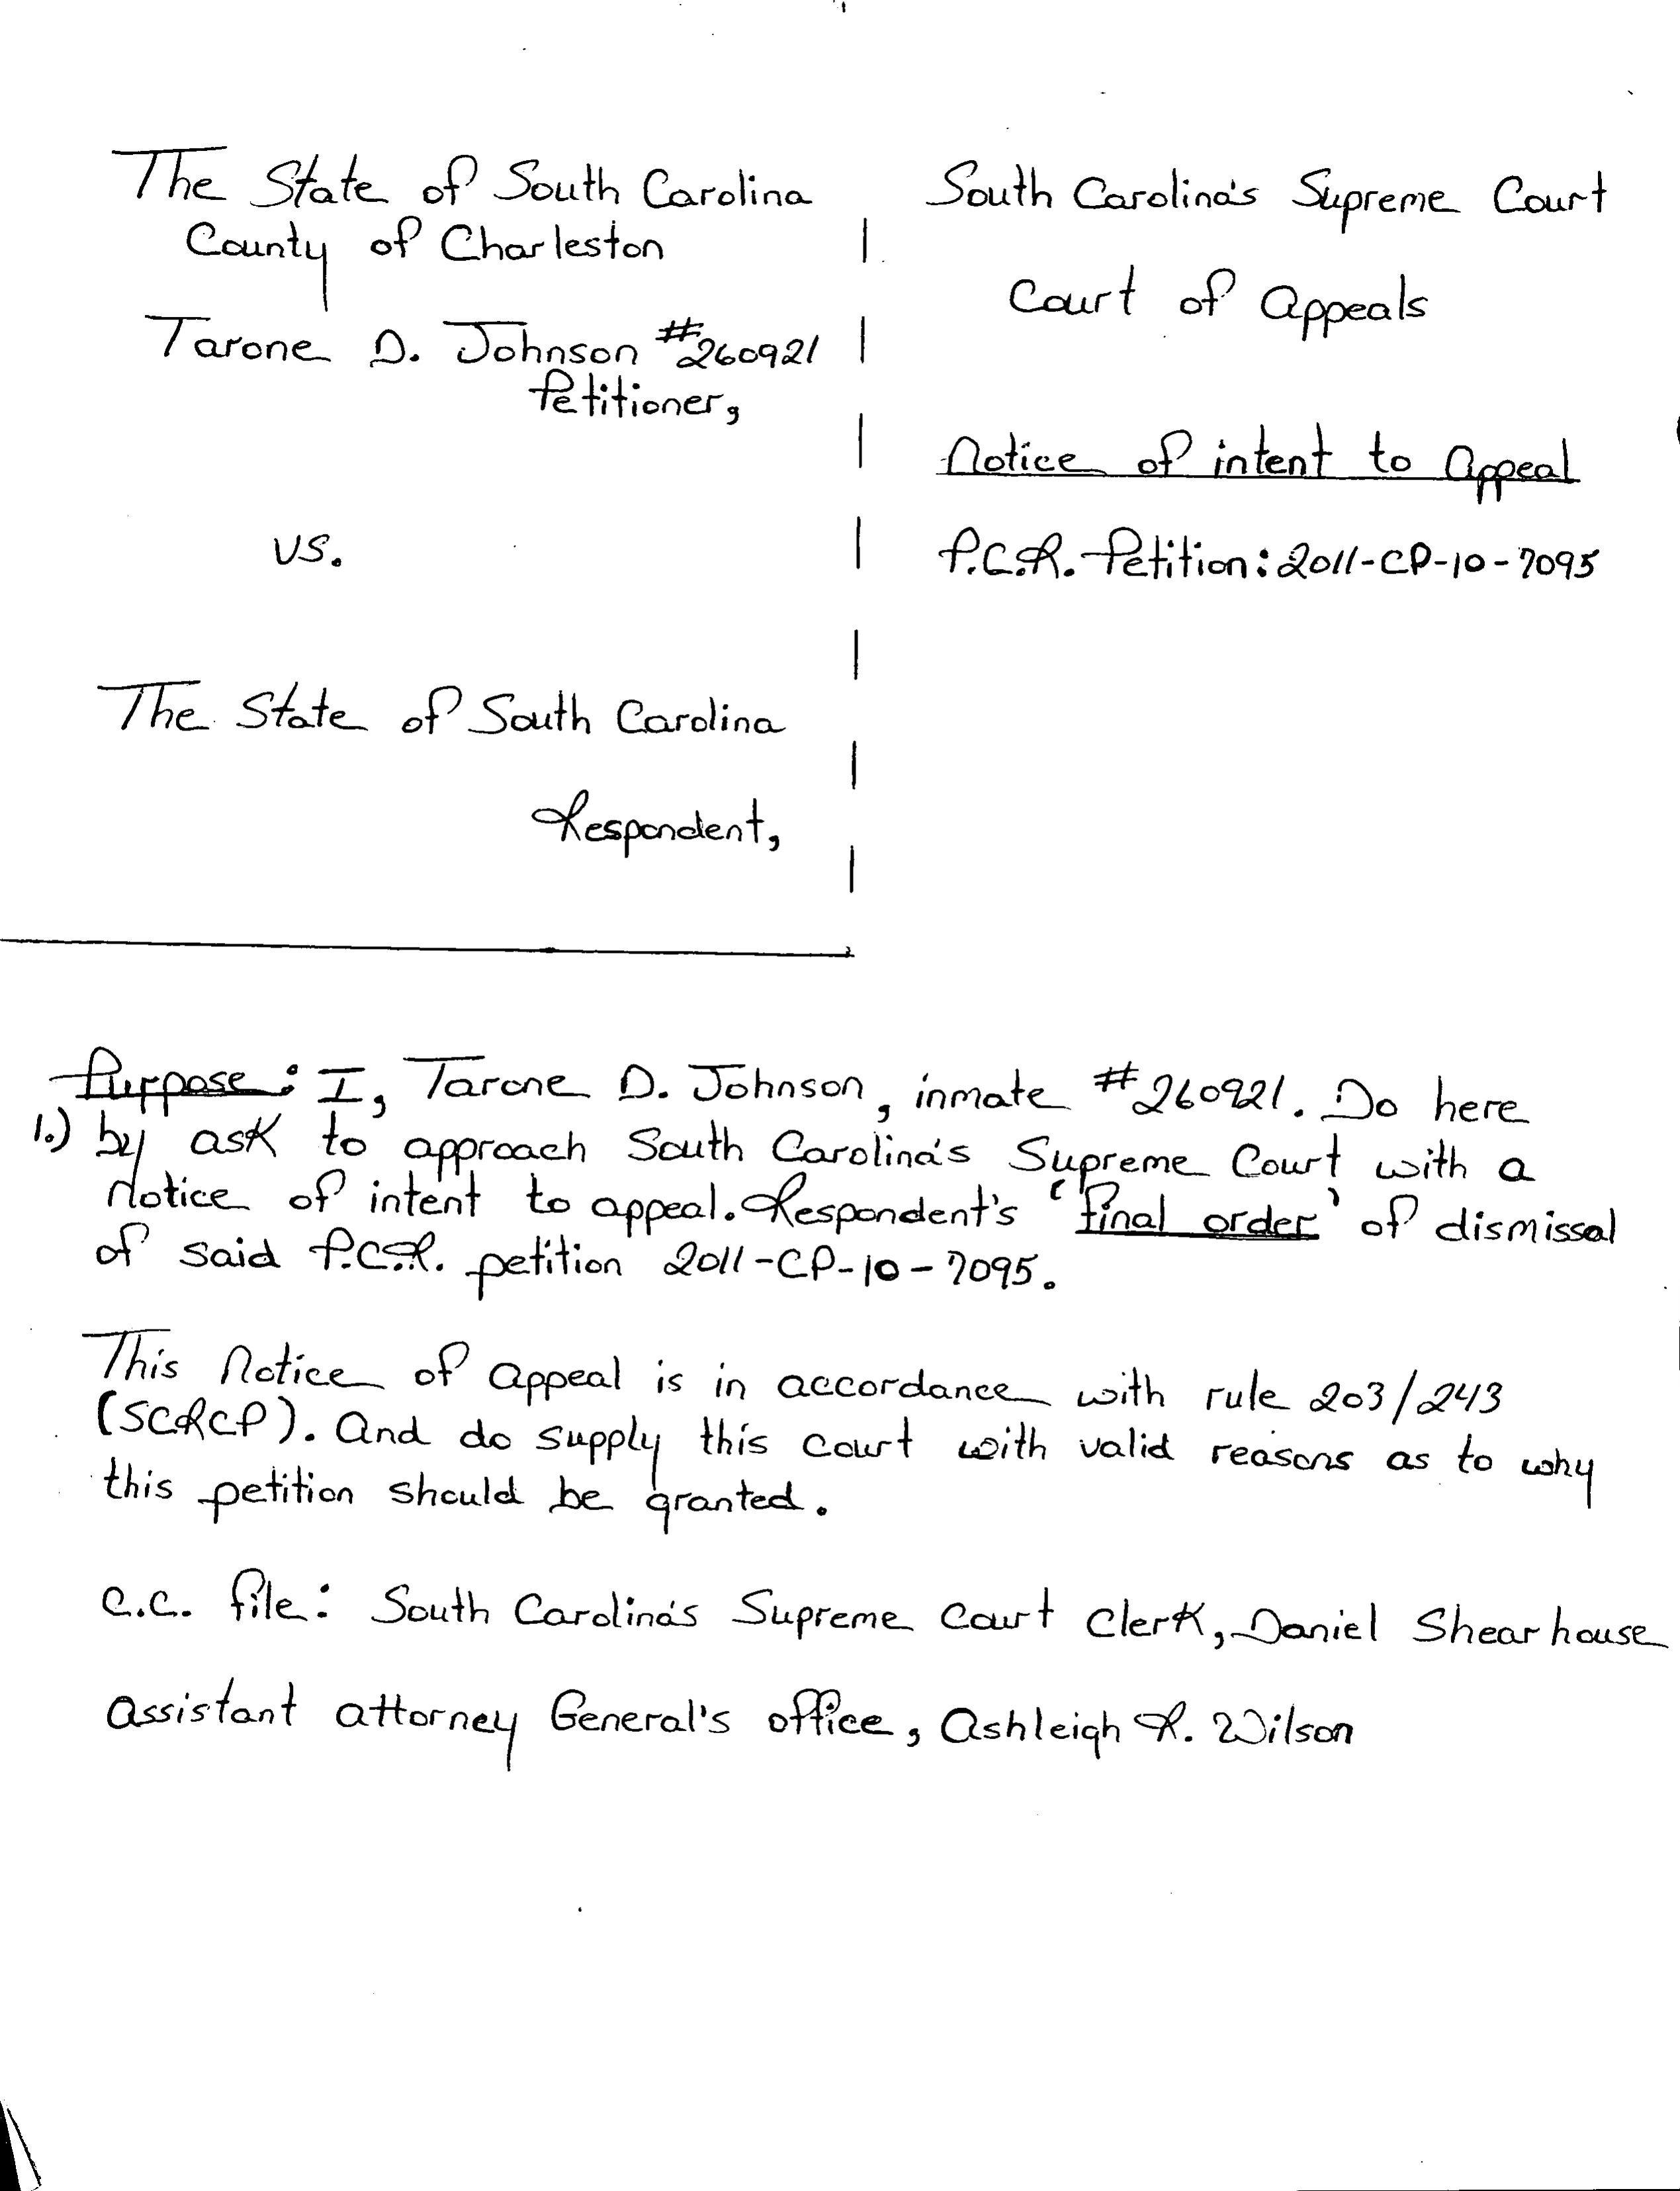 The State of South Carolina
County of Charleston
Tarone D. Johnson #260921
Petitioner,
vs.
The State of South Carolina
Respondent,
South Carolina's Supreme Court
Court of Appeals
Notice of intent to Appeal
P.C.R. Petition: 2011-CP-10-7095
Purpose: I, Tarone D. Johnson, inmate #260921. Do here
1.) by ask to approach South Carolina's Supreme Court with a
Notice of intent to appeal. Respondent's 'final order' of dismissal
of said P.C.R. petition 2011-CP-10-7095.
This Notice of appeal is in accordance with rule 203/243
(SCRCP). And do supply this court with valid reasons as to why
this petition should be granted.
C.C. file: South Carolina's Supreme Court Clerk, Daniel Shearhouse
Assistant attorney General's office, Ashleigh R. Wilson